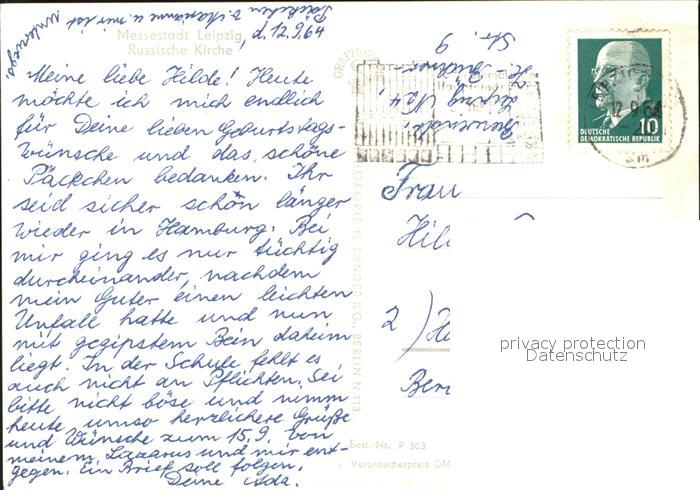 Päckchen v. Marianne u. mir ist
unterwegs
Messestadt Leipzig
Russische Kirche
, d. 12.9.64
Meine liebe Hilde! Heute
möchte ich mich endlich
für Deine lieben Geburtstags-
wünsche und das schöne
Päckchen bedanken. Ihr
seid sicher schon länger
wieder in Hamburg. Bei
mir ging es nur tüchtig
durcheinander, nachdem
mein Guter einen leichten
Unfall hatte und nun
mit gegipstem Bein daheim
liegt. In der Schule fehlt es
auch nicht an Pflichten. Sei
bitte nicht böse und nimm
heute umso herzlichere Grüße
und Wünsche zum 15.9. von
meinem Lazarus und mir ent-
gegen. Ein Brief soll folgen.
Deine Ada.
Leipzig N24
Str. 9
DEUTSCHE
DEMOKRATISCHE REPUBLIK
10
12.9.64
Frau
Hil
2) Ha
Ber
privacy protection
Datenschutz
H. SANDER KG., BERLIN N 113
Best.-Nr. P 303
Verbraucherpreis DM